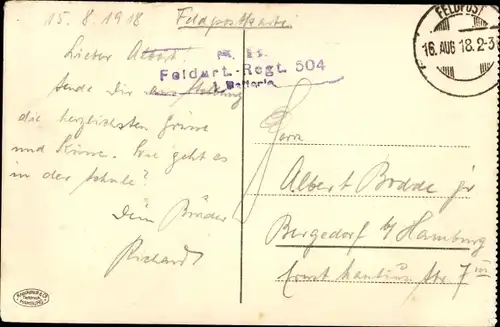 15.8.1918 Feldpostkarte
Lieber Albert!
sende Dir aus Stellung
die herzlichsten Grüße
und Küsse. Wie geht es
in der Schule?
Dein Bruder
Richard
K. B.
Feldart.-Regt. 504
1. Batterie
FELDPOST
16. AUG 18. 2-3
Herrn
Albert Bodde jr
Bergedorf b/Hamburg
Ernst Mantius Str. 7 III
HAMBURG